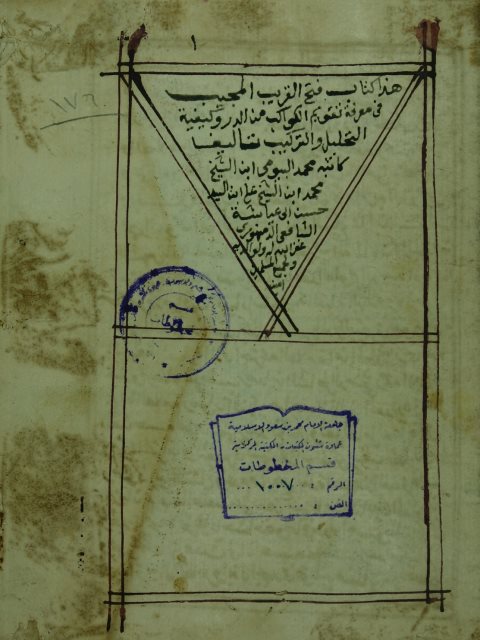 ١
١٧٦
هذا كتاب فتح القريب المجيب
في معرفة تقويم الكواكب من الدر وكيفية
التحليل والتركيب تأليف
كاتبه محمد البيومي ابن الشيخ
محمد ابن الشيخ علي ابن السيد
حسين ابي عياشة
الشافعي الدمنهوري
غفر الله له ولوالديه
ولجميع المسلمين
امين
قسم
المخطوطات
جامعة الإمام محمد بن سعود الإسلامية
عمادة شئون المكتبات - المكتبة المركزية
قسم المخطوطات
الرقم : ١٠٠٧
الفن :